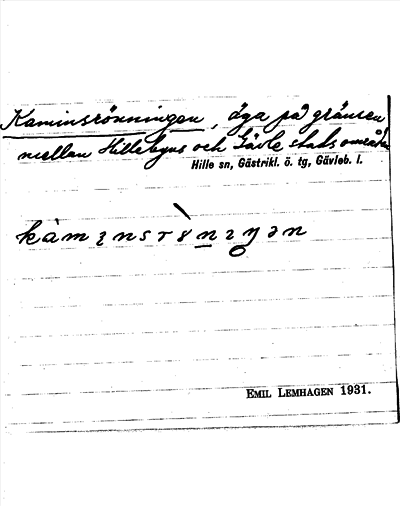 Kaminsrönningen, äga på gränsen
mellan Hille bys och Gävle stads område
Hille sn, Gästrikl. ö. tg, Gävleb. l.
EMIL LEMHAGEN 1931.